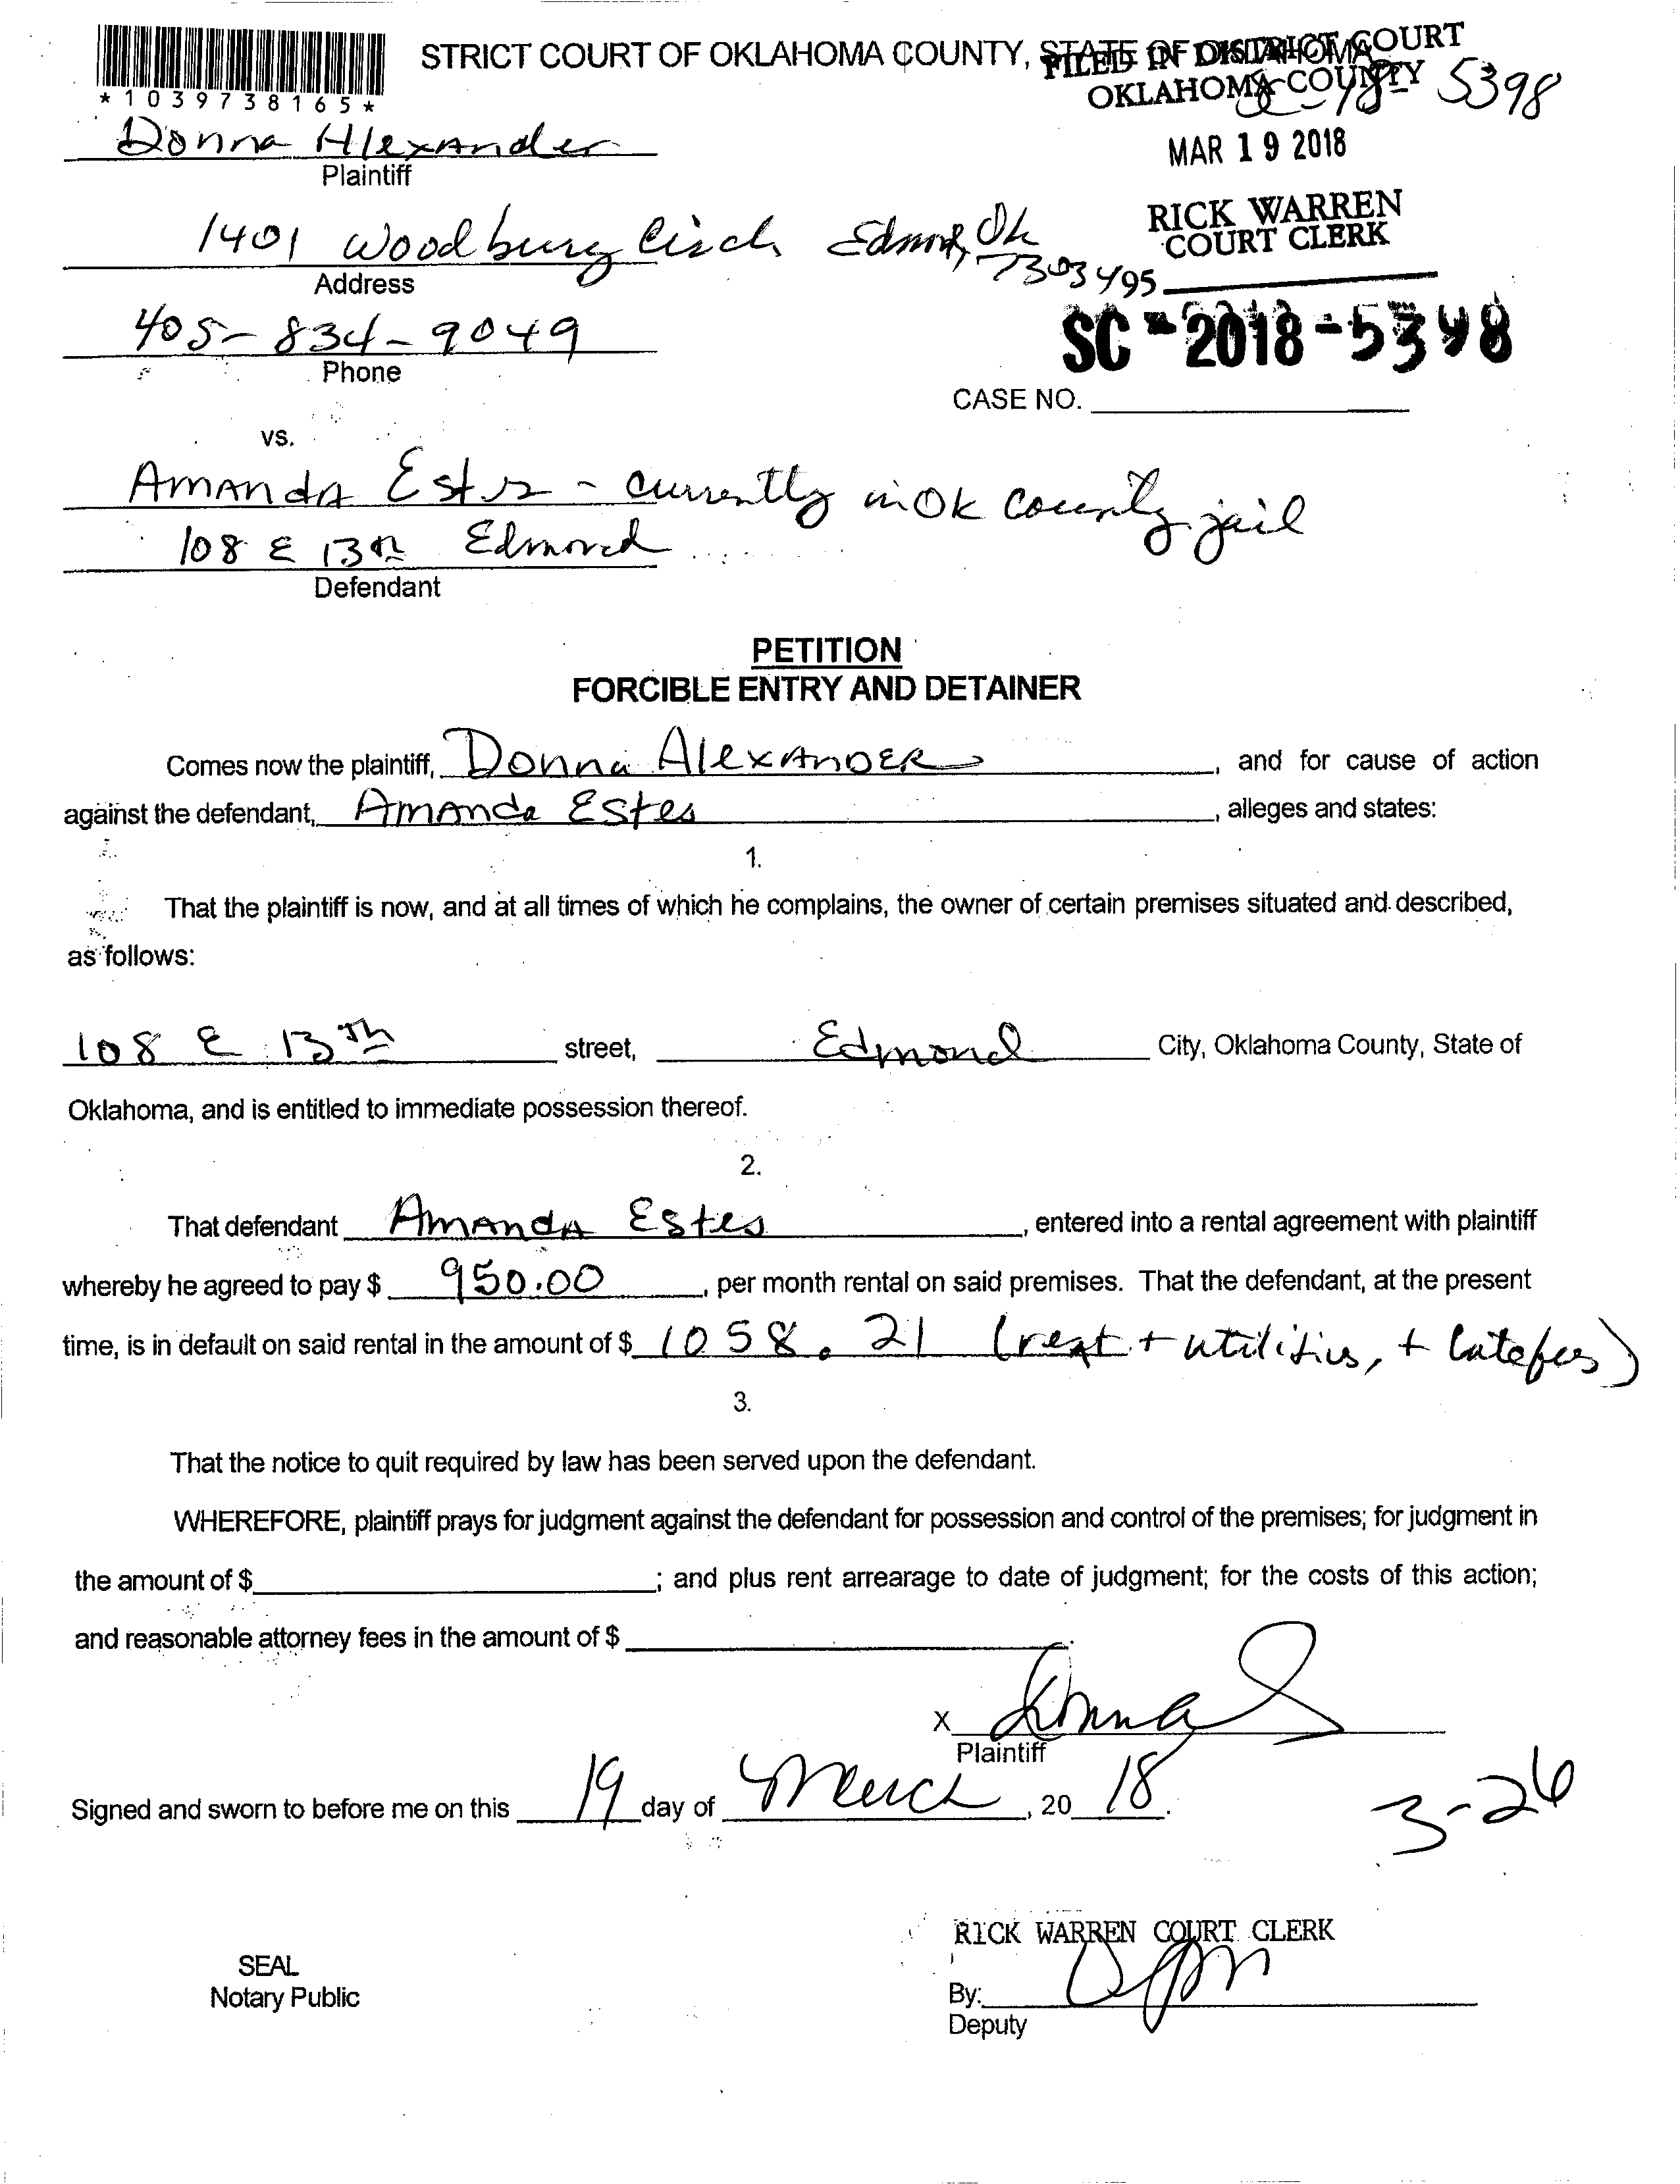 STRICT COURT OF OKLAHOMA COUNTY, STATE OF OKLAHOMA
FILED IN DISTRICT COURT
OKLAHOMA COUNTY
SC-18- 5398
*1039738165*
Donna Alexander
MAR 19 2018
Plaintiff
RICK WARREN
COURT CLERK
1401 Woodbury Circle Edmond, Ok
Address
405-834-9049
SC-2018-5398
Phone
CASE NO.
vs.
Amanda Estes - currently in OK County jail
108 E 13th Edmond
Defendant
PETITION
FORCIBLE ENTRY AND DETAINER
Comes now the plaintiff, Donna AlexAnDER, and for cause of action
against the defendant, Amanda Estes, alleges and states:
1.
That the plaintiff is now, and at all times of which he complains, the owner of certain premises situated and described,
as follows:
108 E 13th street, Edmond City, Oklahoma County, State of
Oklahoma, and is entitled to immediate possession thereof.
2.
That defendant Amanda Estes, entered into a rental agreement with plaintiff
whereby he agreed to pay $ 950.00, per month rental on said premises. That the defendant, at the present
time, is in default on said rental in the amount of $ 1058.21 (rent + utilities, + latefees)
3.
That the notice to quit required by law has been served upon the defendant.
WHEREFORE, plaintiff prays for judgment against the defendant for possession and control of the premises; for judgment in
the amount of $ ; and plus rent arrearage to date of judgment; for the costs of this action;
and reasonable attorney fees in the amount of $ .
X Donna
Plaintiff
Signed and sworn to before me on this 19 day of March, 20 18.
3-26
RICK WARREN COURT CLERK
SEAL
Notary Public
By:
Deputy